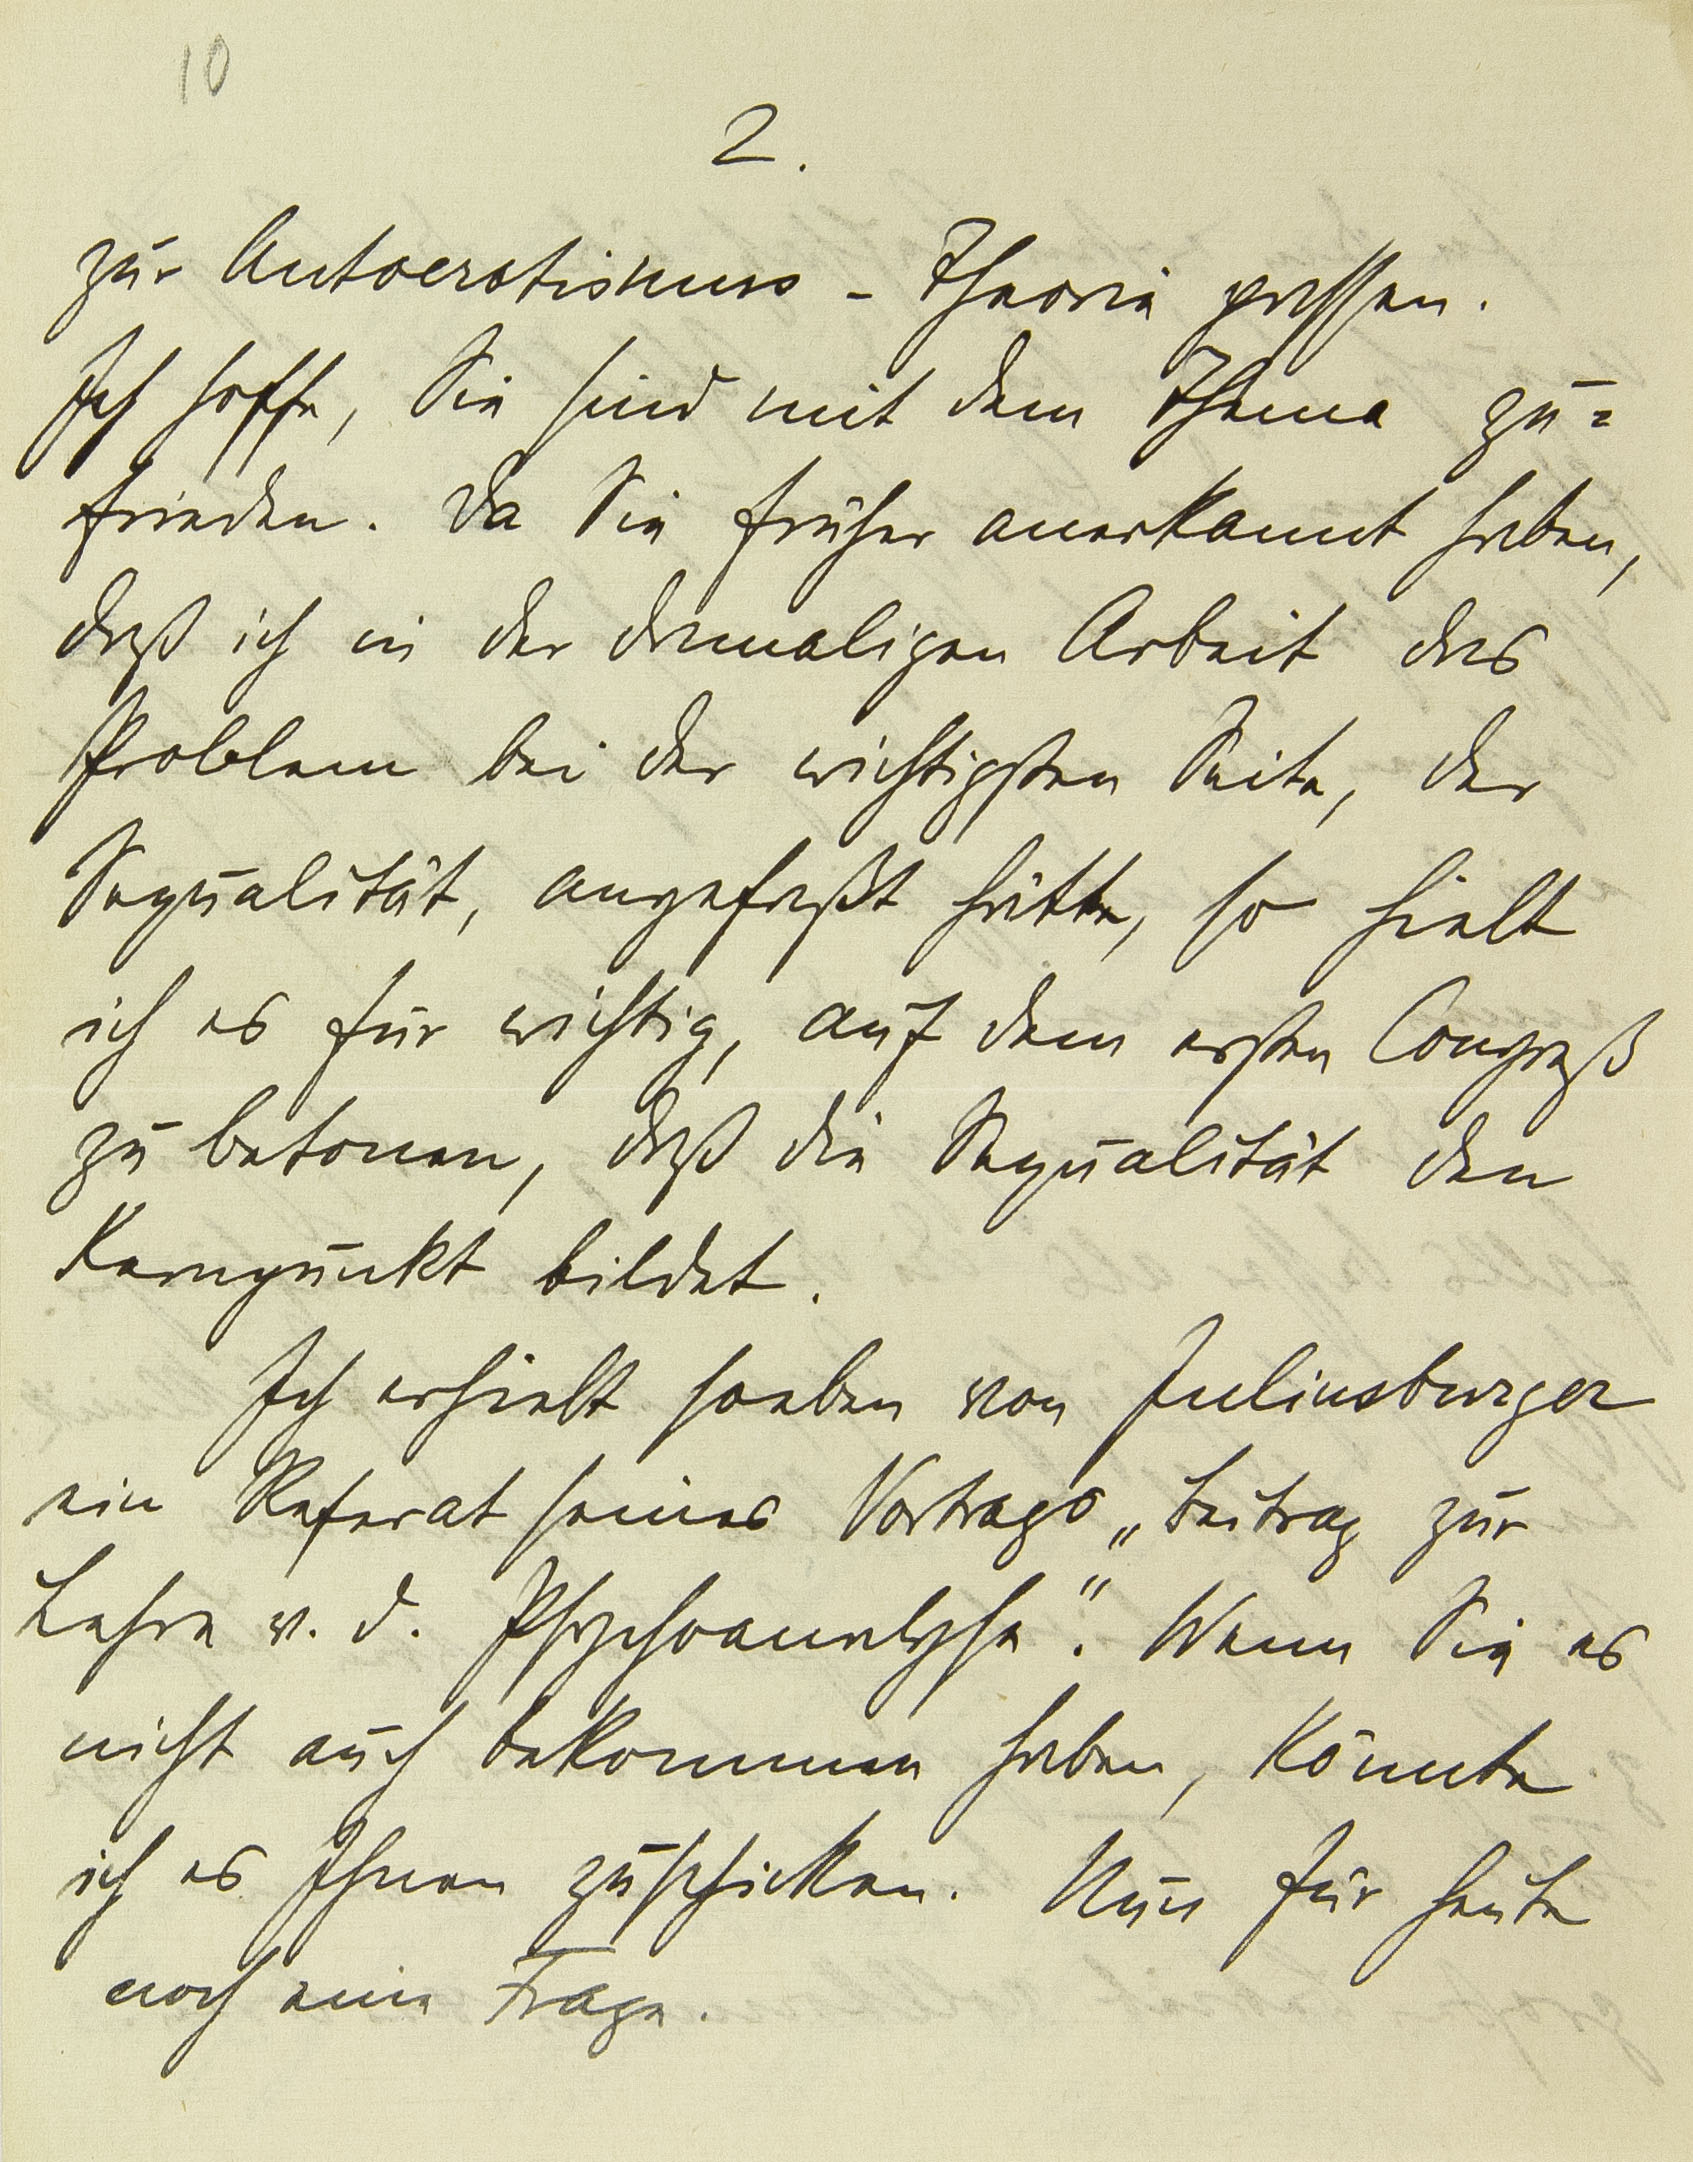 10
2.
zur Autoerotismus-Theorie passen.
Ich hoffe, Sie sind mit dem Thema zu=
frieden. Da Sie früher anerkannt haben,
daß ich in der damaligen Arbeit das
Problem bei der wichtigsten Seite, der
Sexualität, angefaßt hätte, so hielt
ich es für wichtig, auf dem ersten Congreß
zu betonen, daß die Sexualität den
Kernpunkt bildet.
Ich erhielt soeben von Juliusburger
ein Referat seines Vortrags „Beitrag zur
Lehre v. d. Psychoanalyse“. Wenn Sie es
nicht auch bekommen haben, könnte
ich es Ihnen zuschicken. Nun für heute
noch eine Frage.